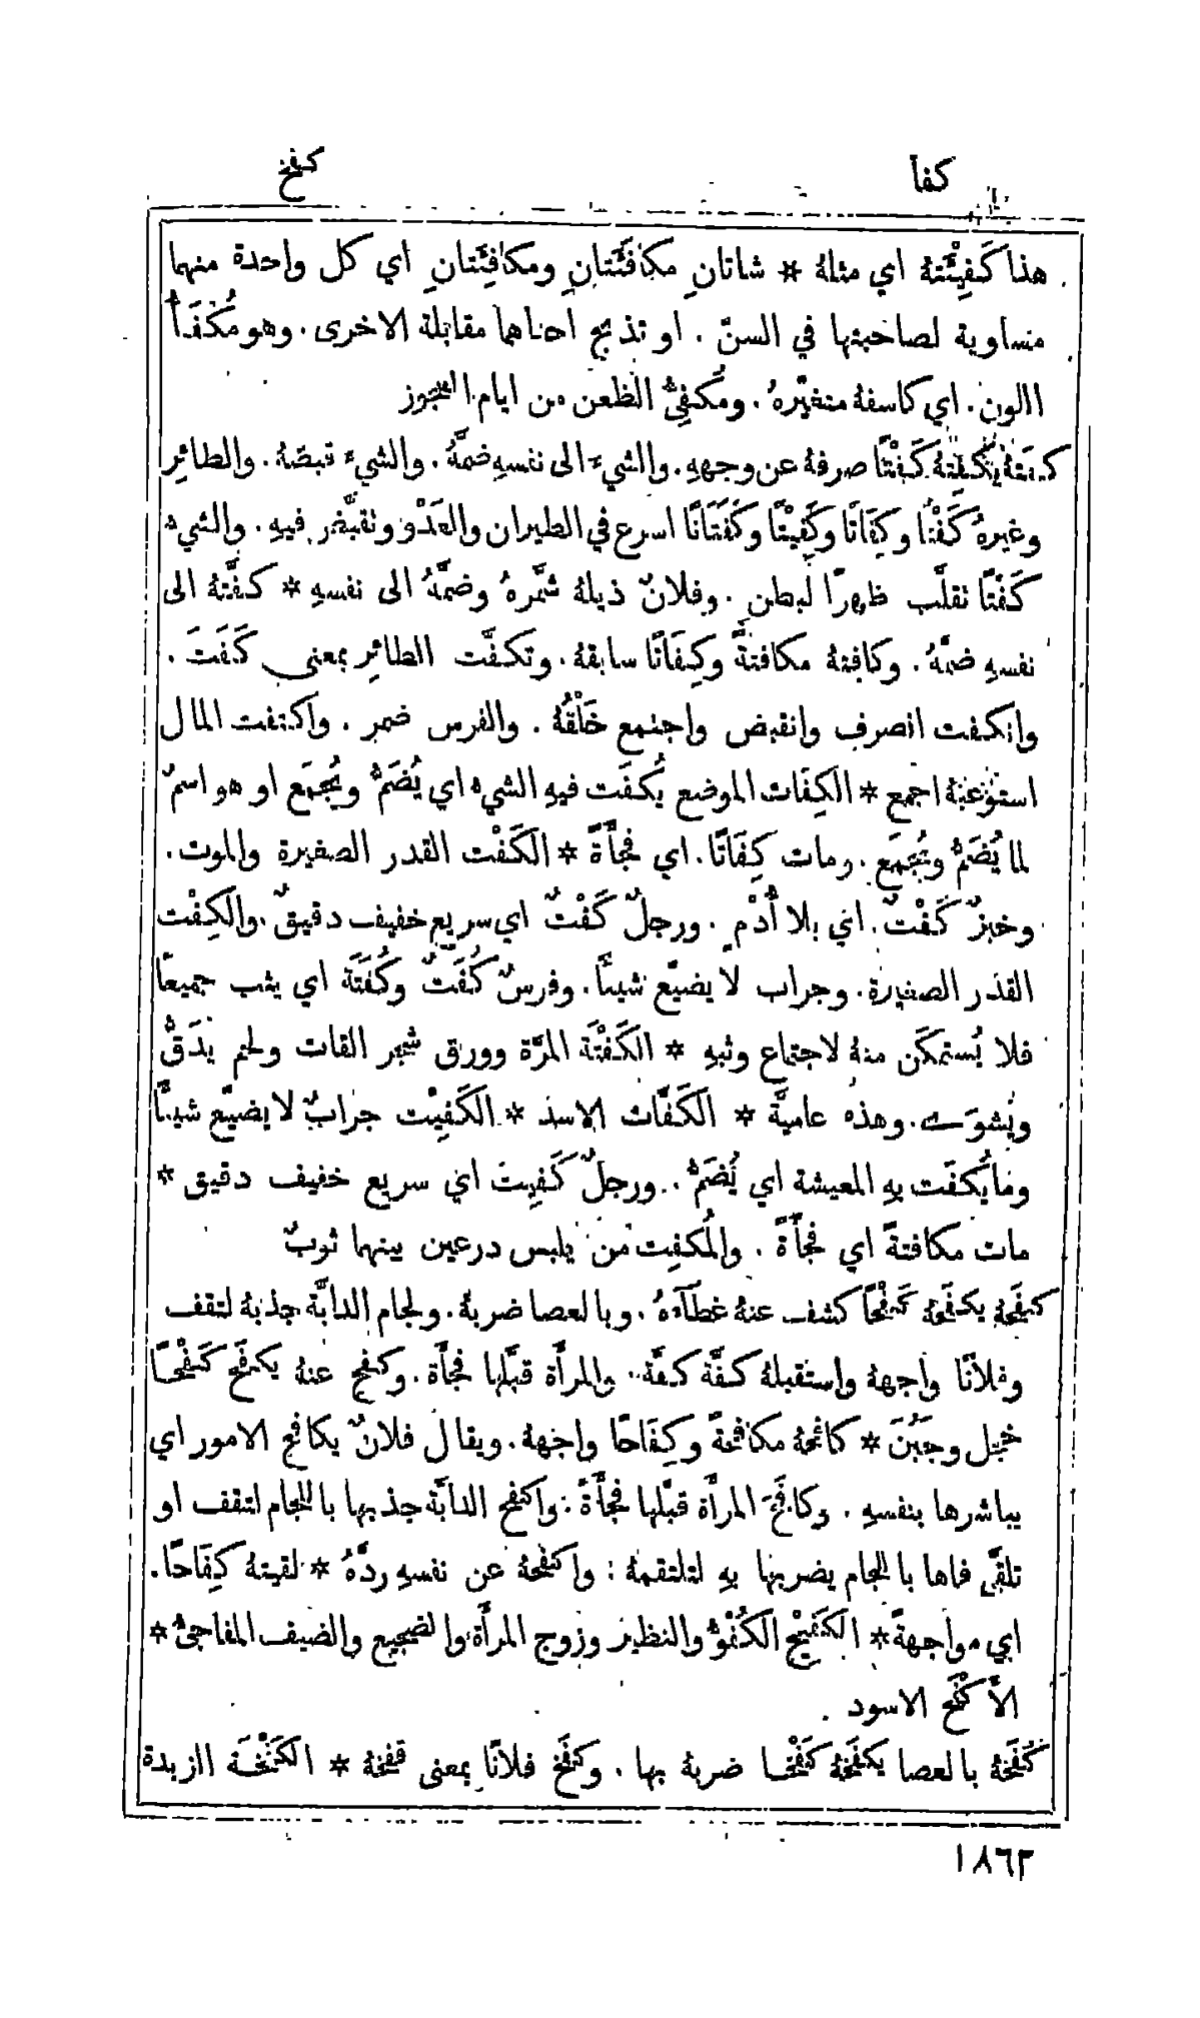 كفا
كفخ
هذا كَفِيْئَتهُ اي مثلهُ * شاتانِ مكافَئَتانِ ومكافِئَتانِ اي كل واحدة منهما
متساوية لصاحبتها في السنّ . او تذبح احداهما مقابلة الاخرى . وهو مُكْفَأُ
اللون . اي كاسفهُ متغيّرهُ . ومُكفِئُ الظعن من ايام العجوز
كفتهُ يكفِتهُ كَفْتًا صرفهُ عن وجههِ . والشيءَ الى نفسهِ ضمَّهُ . والشيءَ قبضهُ . والطائر
وغيرهُ كَفْتًا وكِفَاتًا وكَفِيْتًا وكَفَتَانًا اسرع في الطيران والعَدْو وتقبَّض فيهِ . والشيءُ
كَفْتًا تقلَّب ظهرًا لبطنٍ . وفلانٌ ذيلهُ شمَّرهُ وضمَّهُ الى نفسهِ * كفَّتهُ الى
نفسهِ ضمَّهُ . وكافتهُ مكافتةً وكِفَاتًا سابقهُ . وتكفَّت الطائر بمعنى كَفَتَ .
وانكفت انصرف وانقبض واجتمع خَلْقُهُ . والفرس ضمر . واكتفت المال
استوعبهُ اجمع * الكِفَات الموضع يُكفَت فيهِ الشيءُ اي يُضَمُّ ويُجمَع او هو اسمٌ
لما يُضَمُّ ويُجمَع . ومات كِفَاتًا . اي فجأَةً * الكَفْت القدر الصغيرة والموت .
وخبزٌ كَفْتٌ . اي بلا أُدْمٍ . ورجلٌ كَفْتٌ اي سريع خفيف دقيقٌ . والكِفْت
القدر الصغيرة . وجراب لا يضيّع شيئًا . وفرسٌ كُفَتٌ وكُفَتَة اي يثب جميعًا
فلا يُستمكَن منهُ لاجتماع وثبهِ * الكَفْتَة المرَّة وورق شجر القات ولحم يُدَقُّ
ويُشوَى . وهذه عاميَّة * الكَفَّات الاسد * الكَفِيْت جرابٌ لا يضيّع شيئًا
وما يُكفَت بهِ المعيشة اي يُضَمُّ . ورجلٌ كَفِيت اي سريع خفيف دقيق *
مات مكافتةً اي فجأَةً . والمُكفِت من يلبس درعين بينهما ثوبٌ
كفحهُ يكفَحهُ كَفْحًا كشف عنهُ غطآءَهُ . وبالعصا ضربهُ . ولجام الدابَّة جذبهُ لتقف
وفلانًا واجههُ واستقبلهُ كفَّة كفَّة . والمرأَة قبَّلها فجأَة . وكفح عنهُ يكفَح كَفْحًا
خجل وجَبُنَ * كافحهُ مكافحةً وكِفَاحًا واجههُ . ويقال فلانٌ يكافح الامور اي
يباشرها بنفسهِ . وكافَحَ المرأَة قبَّلها فجأَةً . واكفح الدابَّة جذبها باللجام لتقف او
تلقَّى فاها باللجام يضربها بهِ لتلتقمهُ . واكفحهُ عن نفسهِ ردَّهُ * لقيتهُ كِفَاحًا .
اي مواجهةً * الكَفِيْح الكُفْوءُ والنظير وزوج المرأَة والضجيع والضيف المفاجئُ *
الأَكْفَح الاسود .
كَفَخهُ بالعصا يكفَخهُ كَفْخًا ضربهُ بها . وكفَخ فلانًا بمعنى قفخهُ * الكَفْخَة الزبدة
١٨٦٣